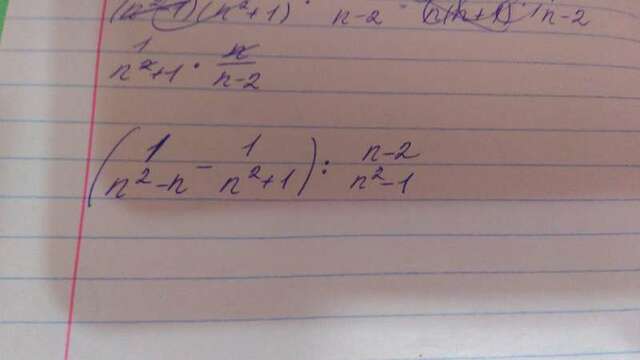 (n²-1)(n²+1) · n-2 n(n+1) · n-2
1/(n²+1) · n/(n-2)
(1/(n²-n) - 1/(n²+1)) : (n-2)/(n²-1)